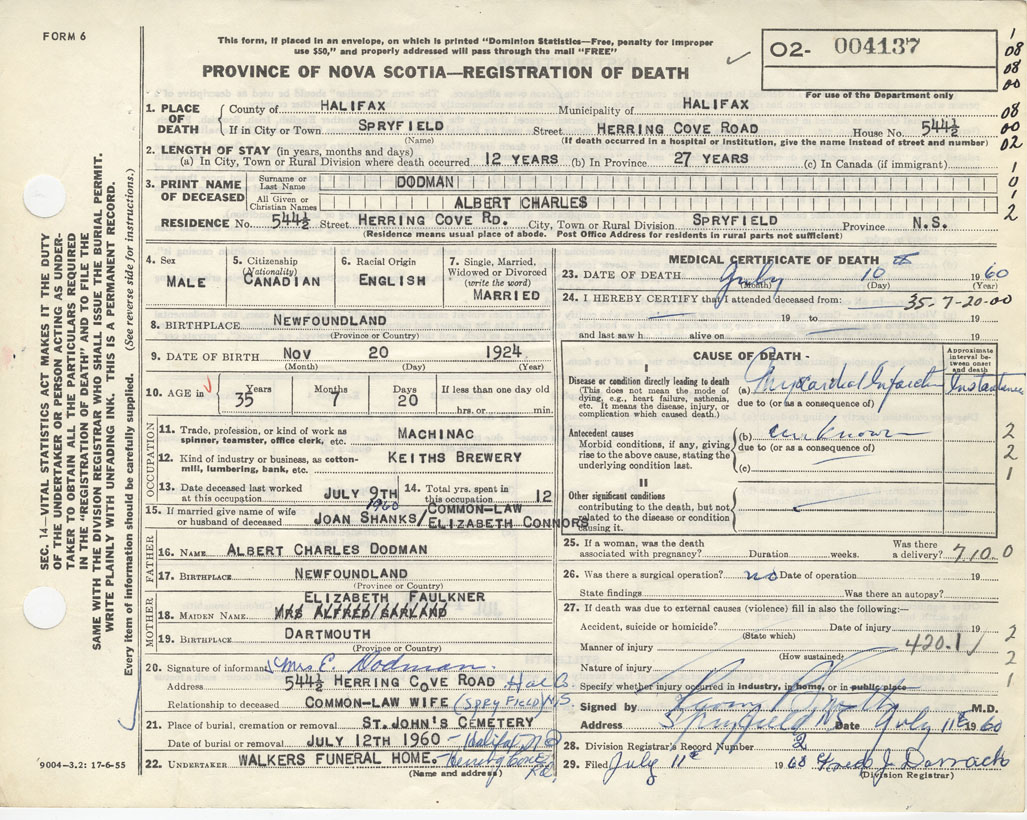 FORM 6
This form, if placed in an envelope, on which is printed "Dominion Statistics—Free, penalty for improper
use $50," and properly addressed will pass through the mail "FREE"
PROVINCE OF NOVA SCOTIA—REGISTRATION OF DEATH
02- 004137
For use of the Department only
1
08
08
00
1. PLACE OF DEATH County of HALIFAX Municipality of HALIFAX
If in City or Town SPRYFIELD Street HERRING COVE ROAD House No. 544½
(Name) (If death occurred in a hospital or institution, give the name instead of street and number)
08
00
02
2. LENGTH OF STAY (in years, months and days)
(a) In City, Town or Rural Division where death occurred 12 YEARS (b) In Province 27 YEARS (c) In Canada (if immigrant)
3. PRINT NAME OF DECEASED Surname or Last Name DODMAN
All Given or Christian Names ALBERT CHARLES
1
0
1
2
RESIDENCE No. 544½ Street HERRING COVE RD. City, Town or Rural Division SPRYFIELD Province N.S.
(Residence means usual place of abode. Post Office Address for residents in rural parts not sufficient)
SEC. 14—VITAL STATISTICS ACT MAKES IT THE DUTY
OF THE UNDERTAKER OR PERSON ACTING AS UNDER-
TAKER TO OBTAIN ALL THE PARTICULARS REQUIRED
IN THE "REGISTRATION OF DEATH" AND TO FILE THE
SAME WITH THE DIVISION REGISTRAR WHO SHALL ISSUE THE BURIAL PERMIT.
WRITE PLAINLY WITH UNFADING INK. THIS IS A PERMANENT RECORD.
Every item of information should be carefully supplied. (See reverse side for instructions.)
4. Sex MALE
5. Citizenship (Nationality) CANADIAN
6. Racial Origin ENGLISH
7. Single, Married, Widowed or Divorced (write the word) MARRIED
8. BIRTHPLACE NEWFOUNDLAND
(Province or Country)
9. DATE OF BIRTH NOV 20 1924
(Month) (Day) (Year)
10. AGE in Years 35 Months 7 Days 20 If less than one day old hrs. or min.
OCCUPATION
11. Trade, profession, or kind of work as spinner, teamster, office clerk, etc. MACHINAC
12. Kind of industry or business, as cotton-mill, lumbering, bank, etc. KEITHS BREWERY
13. Date deceased last worked at this occupation JULY 9TH 1960
14. Total yrs. spent in this occupation 12
15. If married give name of wife or husband of deceased JOAN SHANKS/COMMON-LAW ELIZABETH CONNORS
FATHER
16. NAME ALBERT CHARLES DODMAN
17. BIRTHPLACE NEWFOUNDLAND
(Province or Country)
MOTHER
ELIZABETH FAULKNER
18. MAIDEN NAME MRS ALFRED/GARLAND
19. BIRTHPLACE DARTMOUTH
(Province or Country)
20. Signature of informant Mrs E. Dodman.
Address 544½ HERRING COVE ROAD Hal Co
Relationship to deceased COMMON-LAW WIFE (Spryfield) N.S.
21. Place of burial, cremation or removal ST. JOHN'S CEMETERY
Date of burial or removal JULY 12TH 1960 - Halifax
22. UNDERTAKER WALKERS FUNERAL HOME. Herring Cove Rd.
(Name and address)
9004-3.2: 17-6-55
MEDICAL CERTIFICATE OF DEATH
23. DATE OF DEATH July 10th 1960
(Month) (Day) (Year)
24. I HEREBY CERTIFY that I attended deceased from: 35-7-20-00
19 to 19
and last saw h alive on 19
CAUSE OF DEATH
Approximate interval between onset and death
I
Disease or condition directly leading to death
(This does not mean the mode of dying, e.g., heart failure, asthenia, etc. It means the disease, injury, or complication which caused death.)
(a) Myocardial Infarction
due to (or as a consequence of)
Antecedent causes
Morbid conditions, if any, giving rise to the above cause, stating the underlying condition last.
(b) unknown
due to (or as a consequence of)
(c)
2
2
1
II
Other significant conditions
contributing to the death, but not related to the disease or condition causing it.
25. If a woman, was the death associated with pregnancy? Duration weeks. Was there a delivery? 7100
26. Was there a surgical operation? no Date of operation 19
State findings Was there an autopsy?
27. If death was due to external causes (violence) fill in also the following:—
Accident, suicide or homicide? Date of injury 19
(State which)
Manner of injury 420.1
(How sustained)
Nature of injury
Specify whether injury occurred in industry, in home, or in public place
2
2
1
Signed by M.D.
Address Spryfield NS Date July 11th 1960
28. Division Registrar's Record Number 2
29. Filed July 11th 1960 Fred J. Darrach
(Division Registrar)